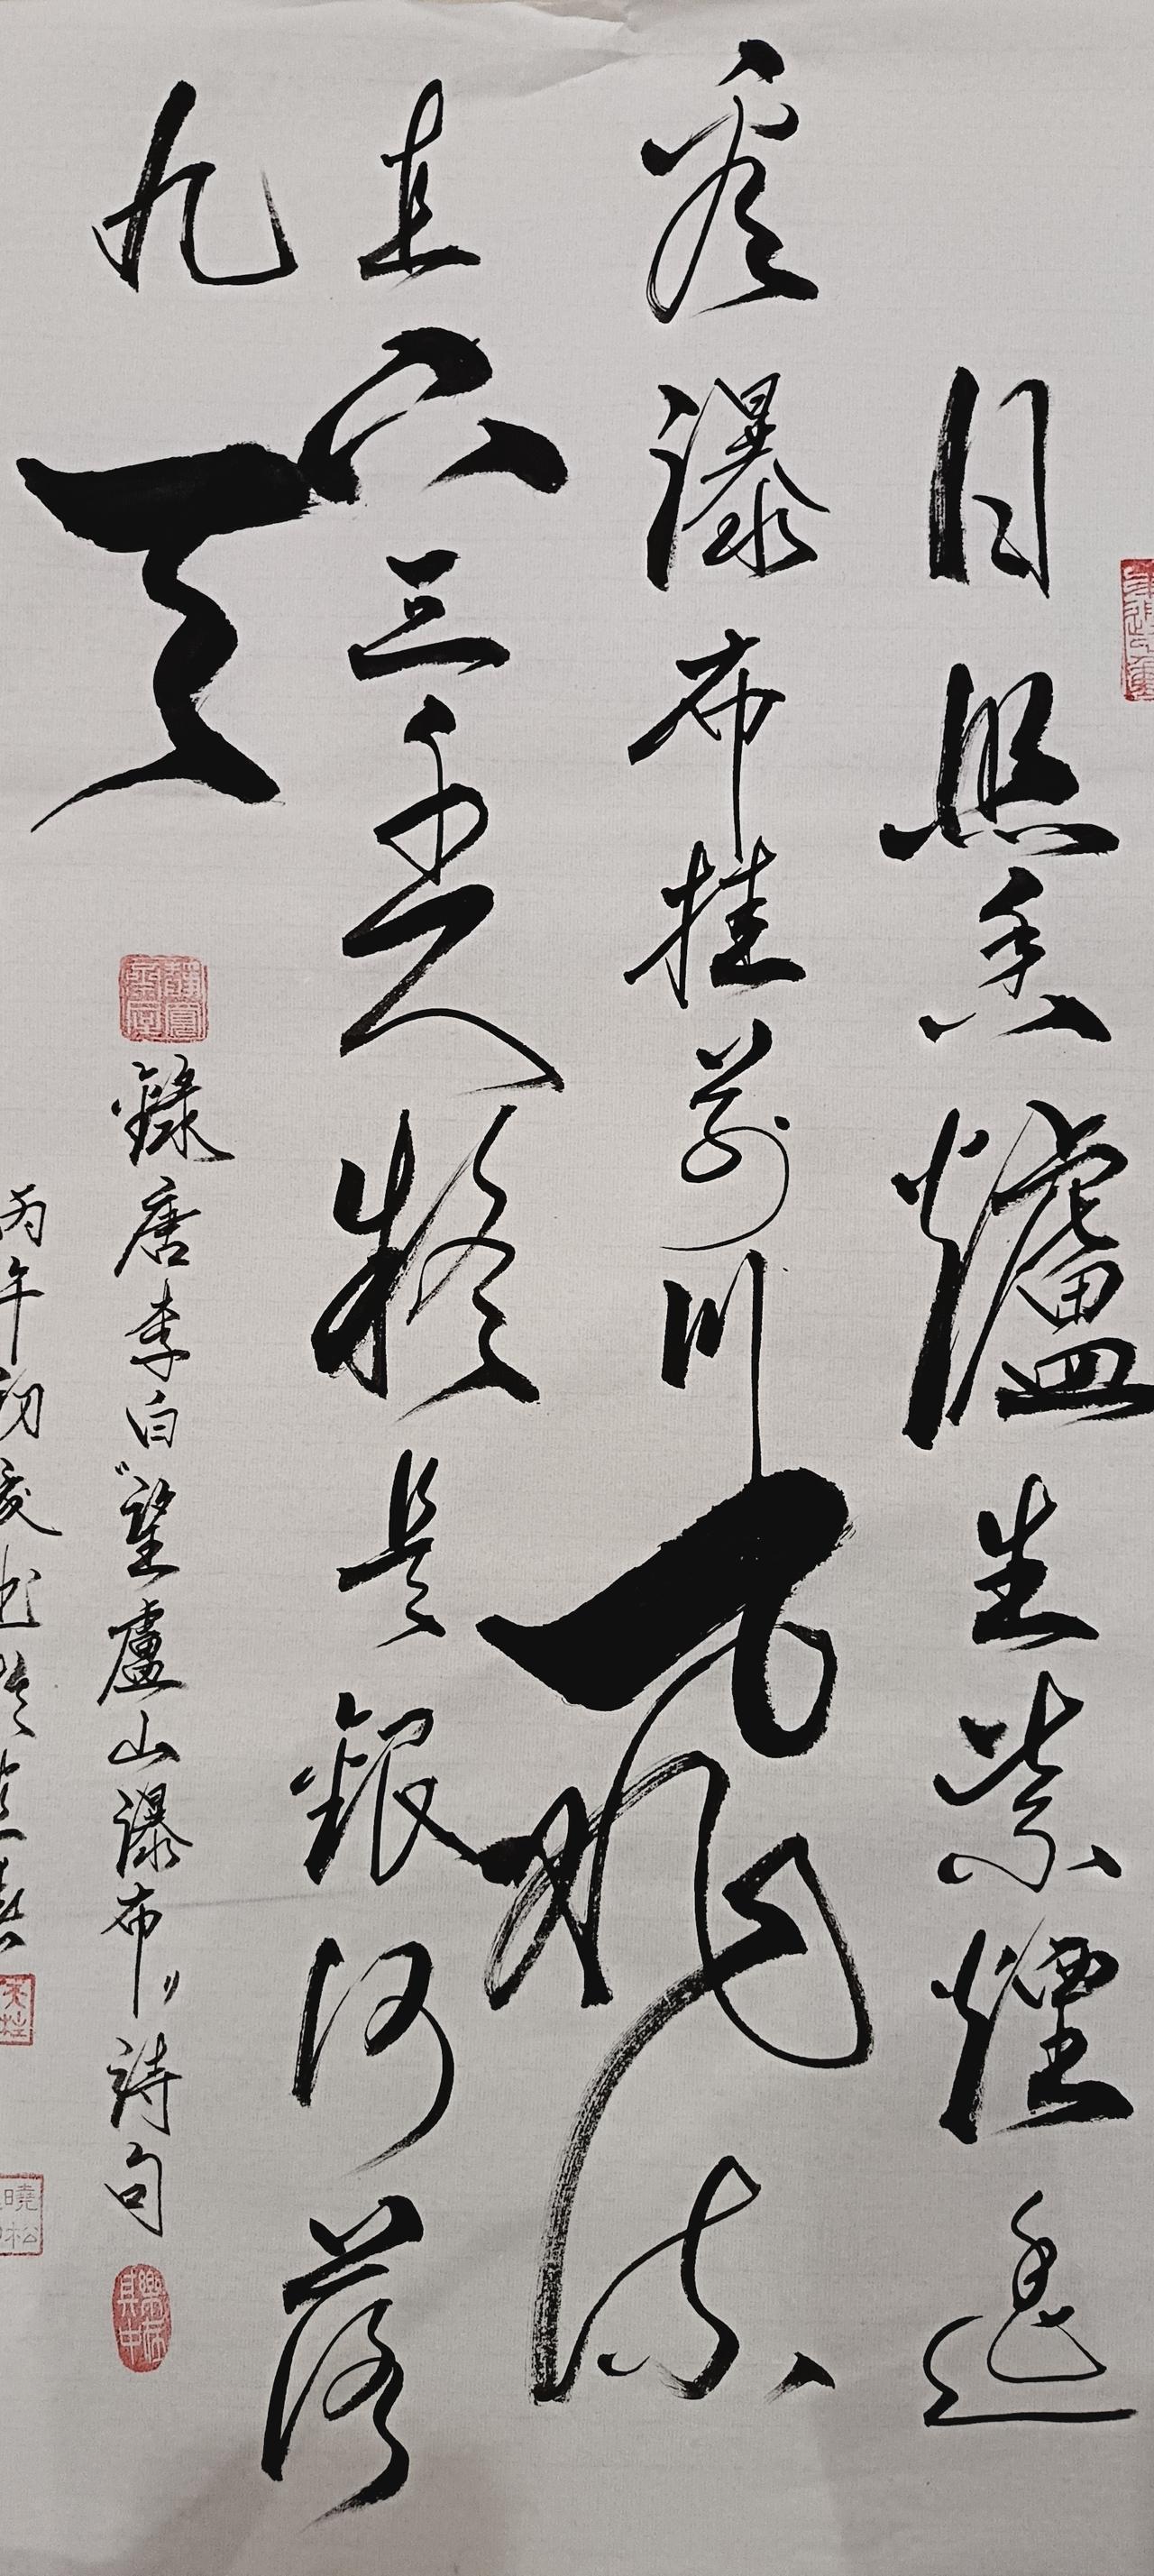 日照香爐生紫煙遥
看瀑布挂前川飛流
直下三千尺疑是銀河落
九天
錄唐李白"望廬山瀑布"詩句
丙午初夏
曉松
樂在其中